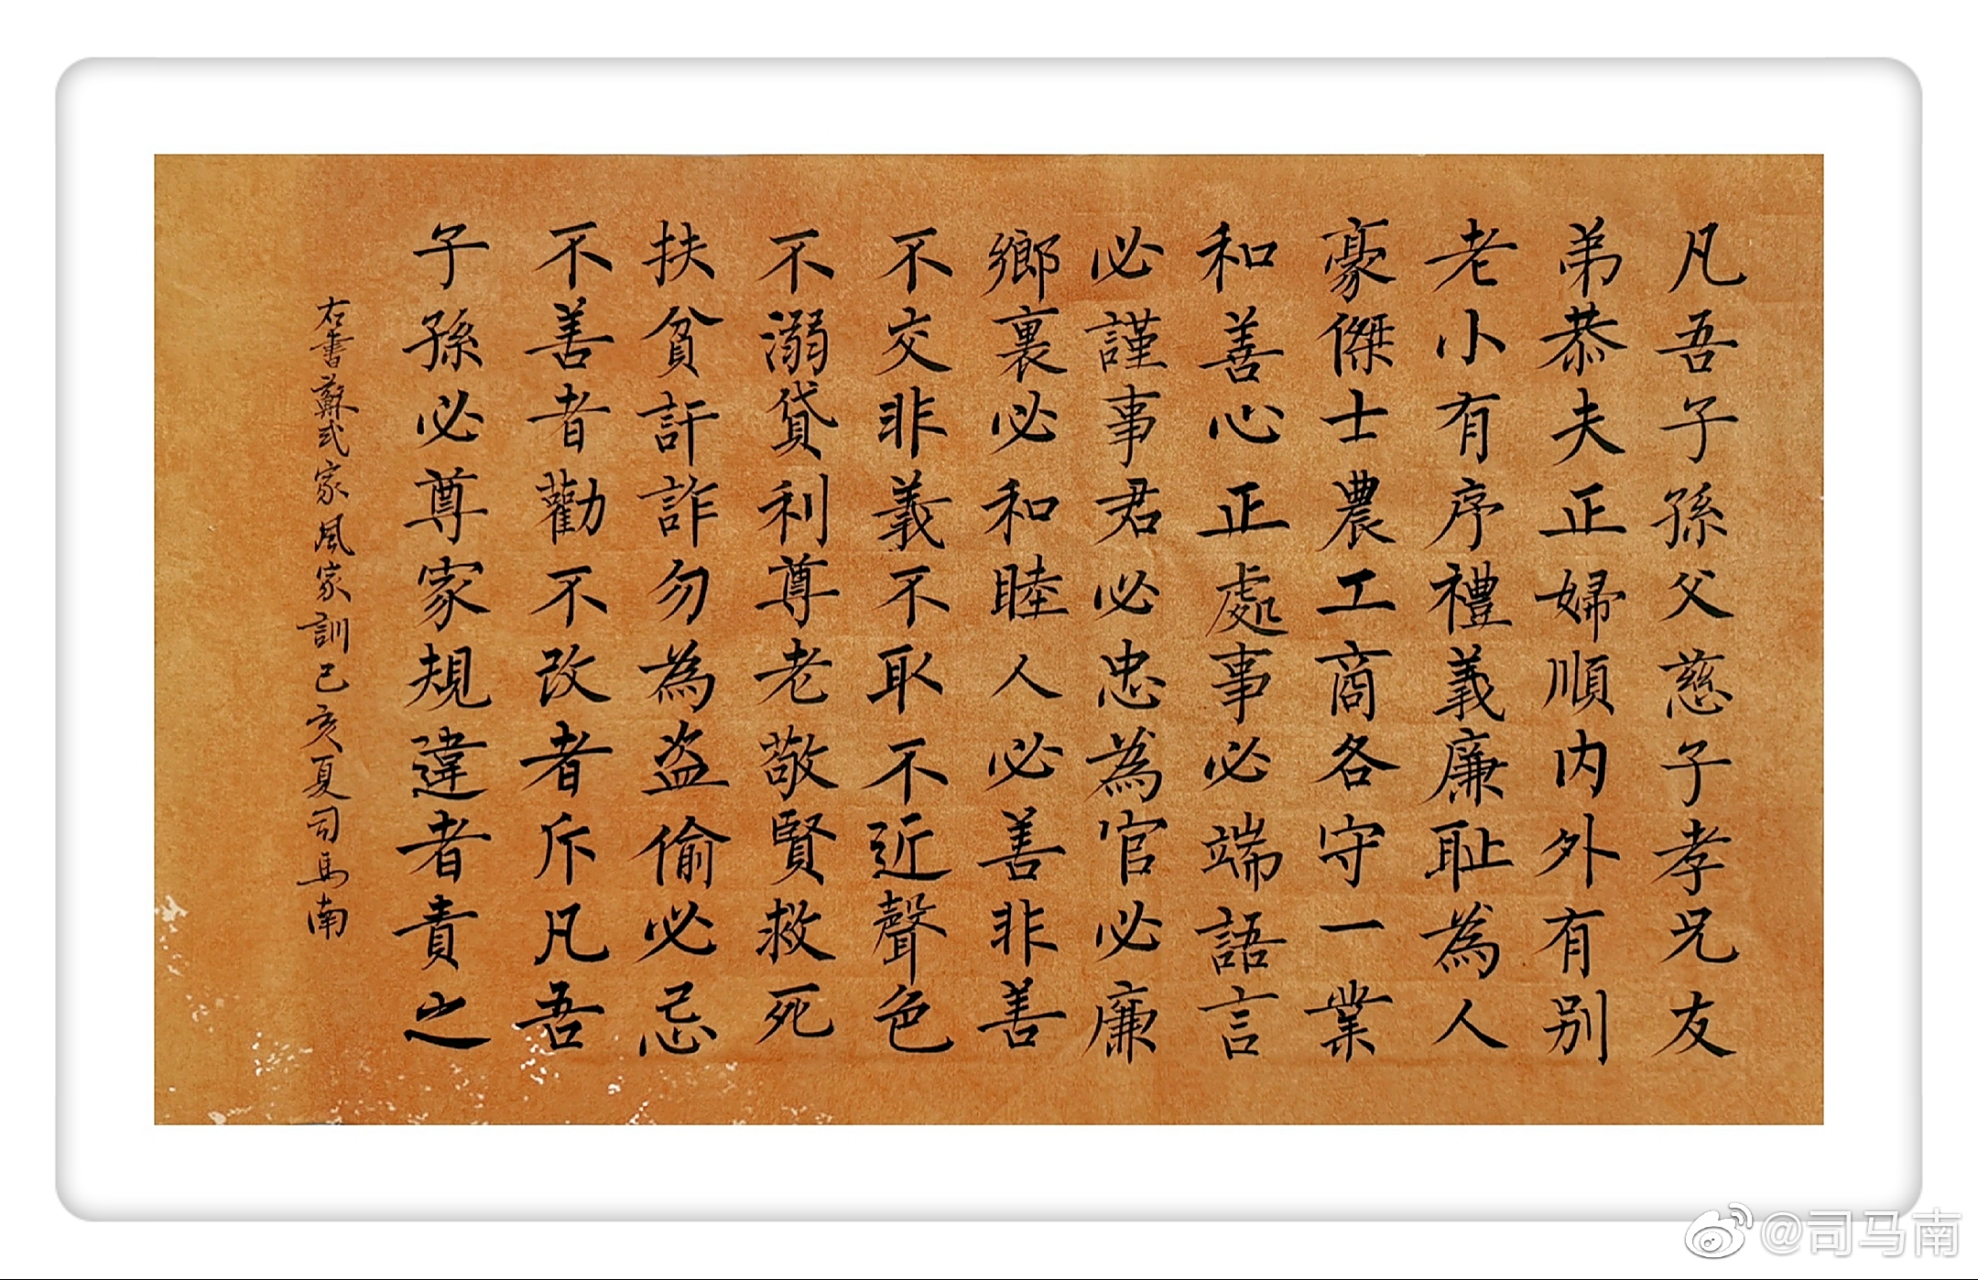 凡吾子孫父慈子孝兄友
弟恭夫正婦順内外有别
老小有序禮義廉耻為人
豪傑士農工商各守一業
和善心正處事必端語言
必謹事君必忠為官必廉
鄉裏必和睦人必善非善
不交非義不取不近聲色
不溺貸利尊老敬賢救死
扶貧訐詐勿為盗偷必忌
不善者勸不改者斥凡吾
子孫必尊家規違者責之
右書蘇式家風家訓己亥夏司馬南
@司马南